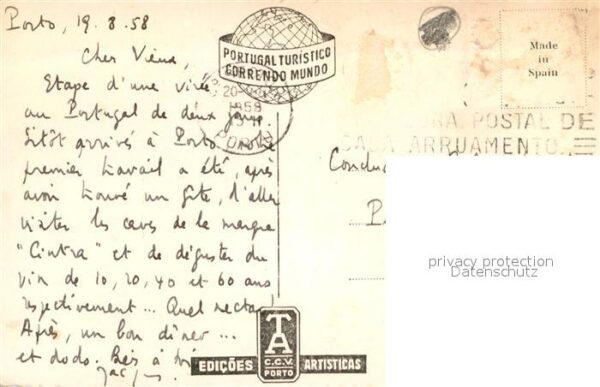 Porto, 19.8.58
Cher Vieux,
Etape d'une virée
au Portugal de deux jours
Sitôt arrivés à Porto notre
premier travail a été, après
avoir trouvé un gîte, d'aller
visiter les caves de la marque
"Cintra" et de déguster du
vin de 10, 20, 40 et 60 ans
respectivement... Quel nectar
Après, un bon dîner...
et dodo. Bis à toi
PORTUGAL TURÍSTICO
CORRENDO MUNDO
20-
1958
PORTO
Made
in
Spain
POSTAL DE
CADA ARRUAMENTO
privacy protection
Datenschutz
TA
C.C.V.
PORTO
EDIÇÕES ARTISTICAS